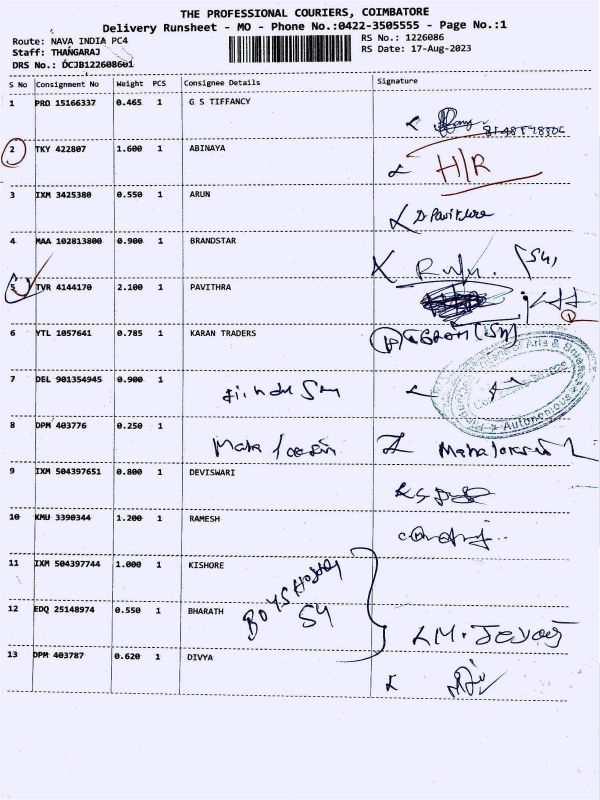 THE PROFESSIONAL COURIERS, COIMBATORE
Delivery Runsheet - MO - Phone No.:0422-3505555 - Page No.:1
Route: NAVA INDIA PC4
RS No.: 1226086
Staff: THANGARAJ
RS Date: 17-Aug-2023
DRS No.: DCJB122608601
S No Consignment No Weight PCS Consignee Details Signature
1 PRO 15166337 0.465 1 G S TIFFANCY
2 TKY 422807 1.600 1 ABINAYA H/R
3 IXM 3425380 0.550 1 ARUN
4 MAA 102813800 0.900 1 BRANDSTAR
5 TVR 4144170 2.100 1 PAVITHRA
6 YTL 1057641 0.785 1 KARAN TRADERS
7 DEL 901354945 0.900 1
Autonomous
8 DPM 403776 0.250 1
9 IXM 504397651 0.800 1 DEVISWARI
10 KMU 3390344 1.200 1 RAMESH
11 IXM 504397744 1.000 1 KISHORE
BOYS Hostel
12 EDQ 25148974 0.550 1 BHARATH
13 DPM 403787 0.620 1 DIVYA